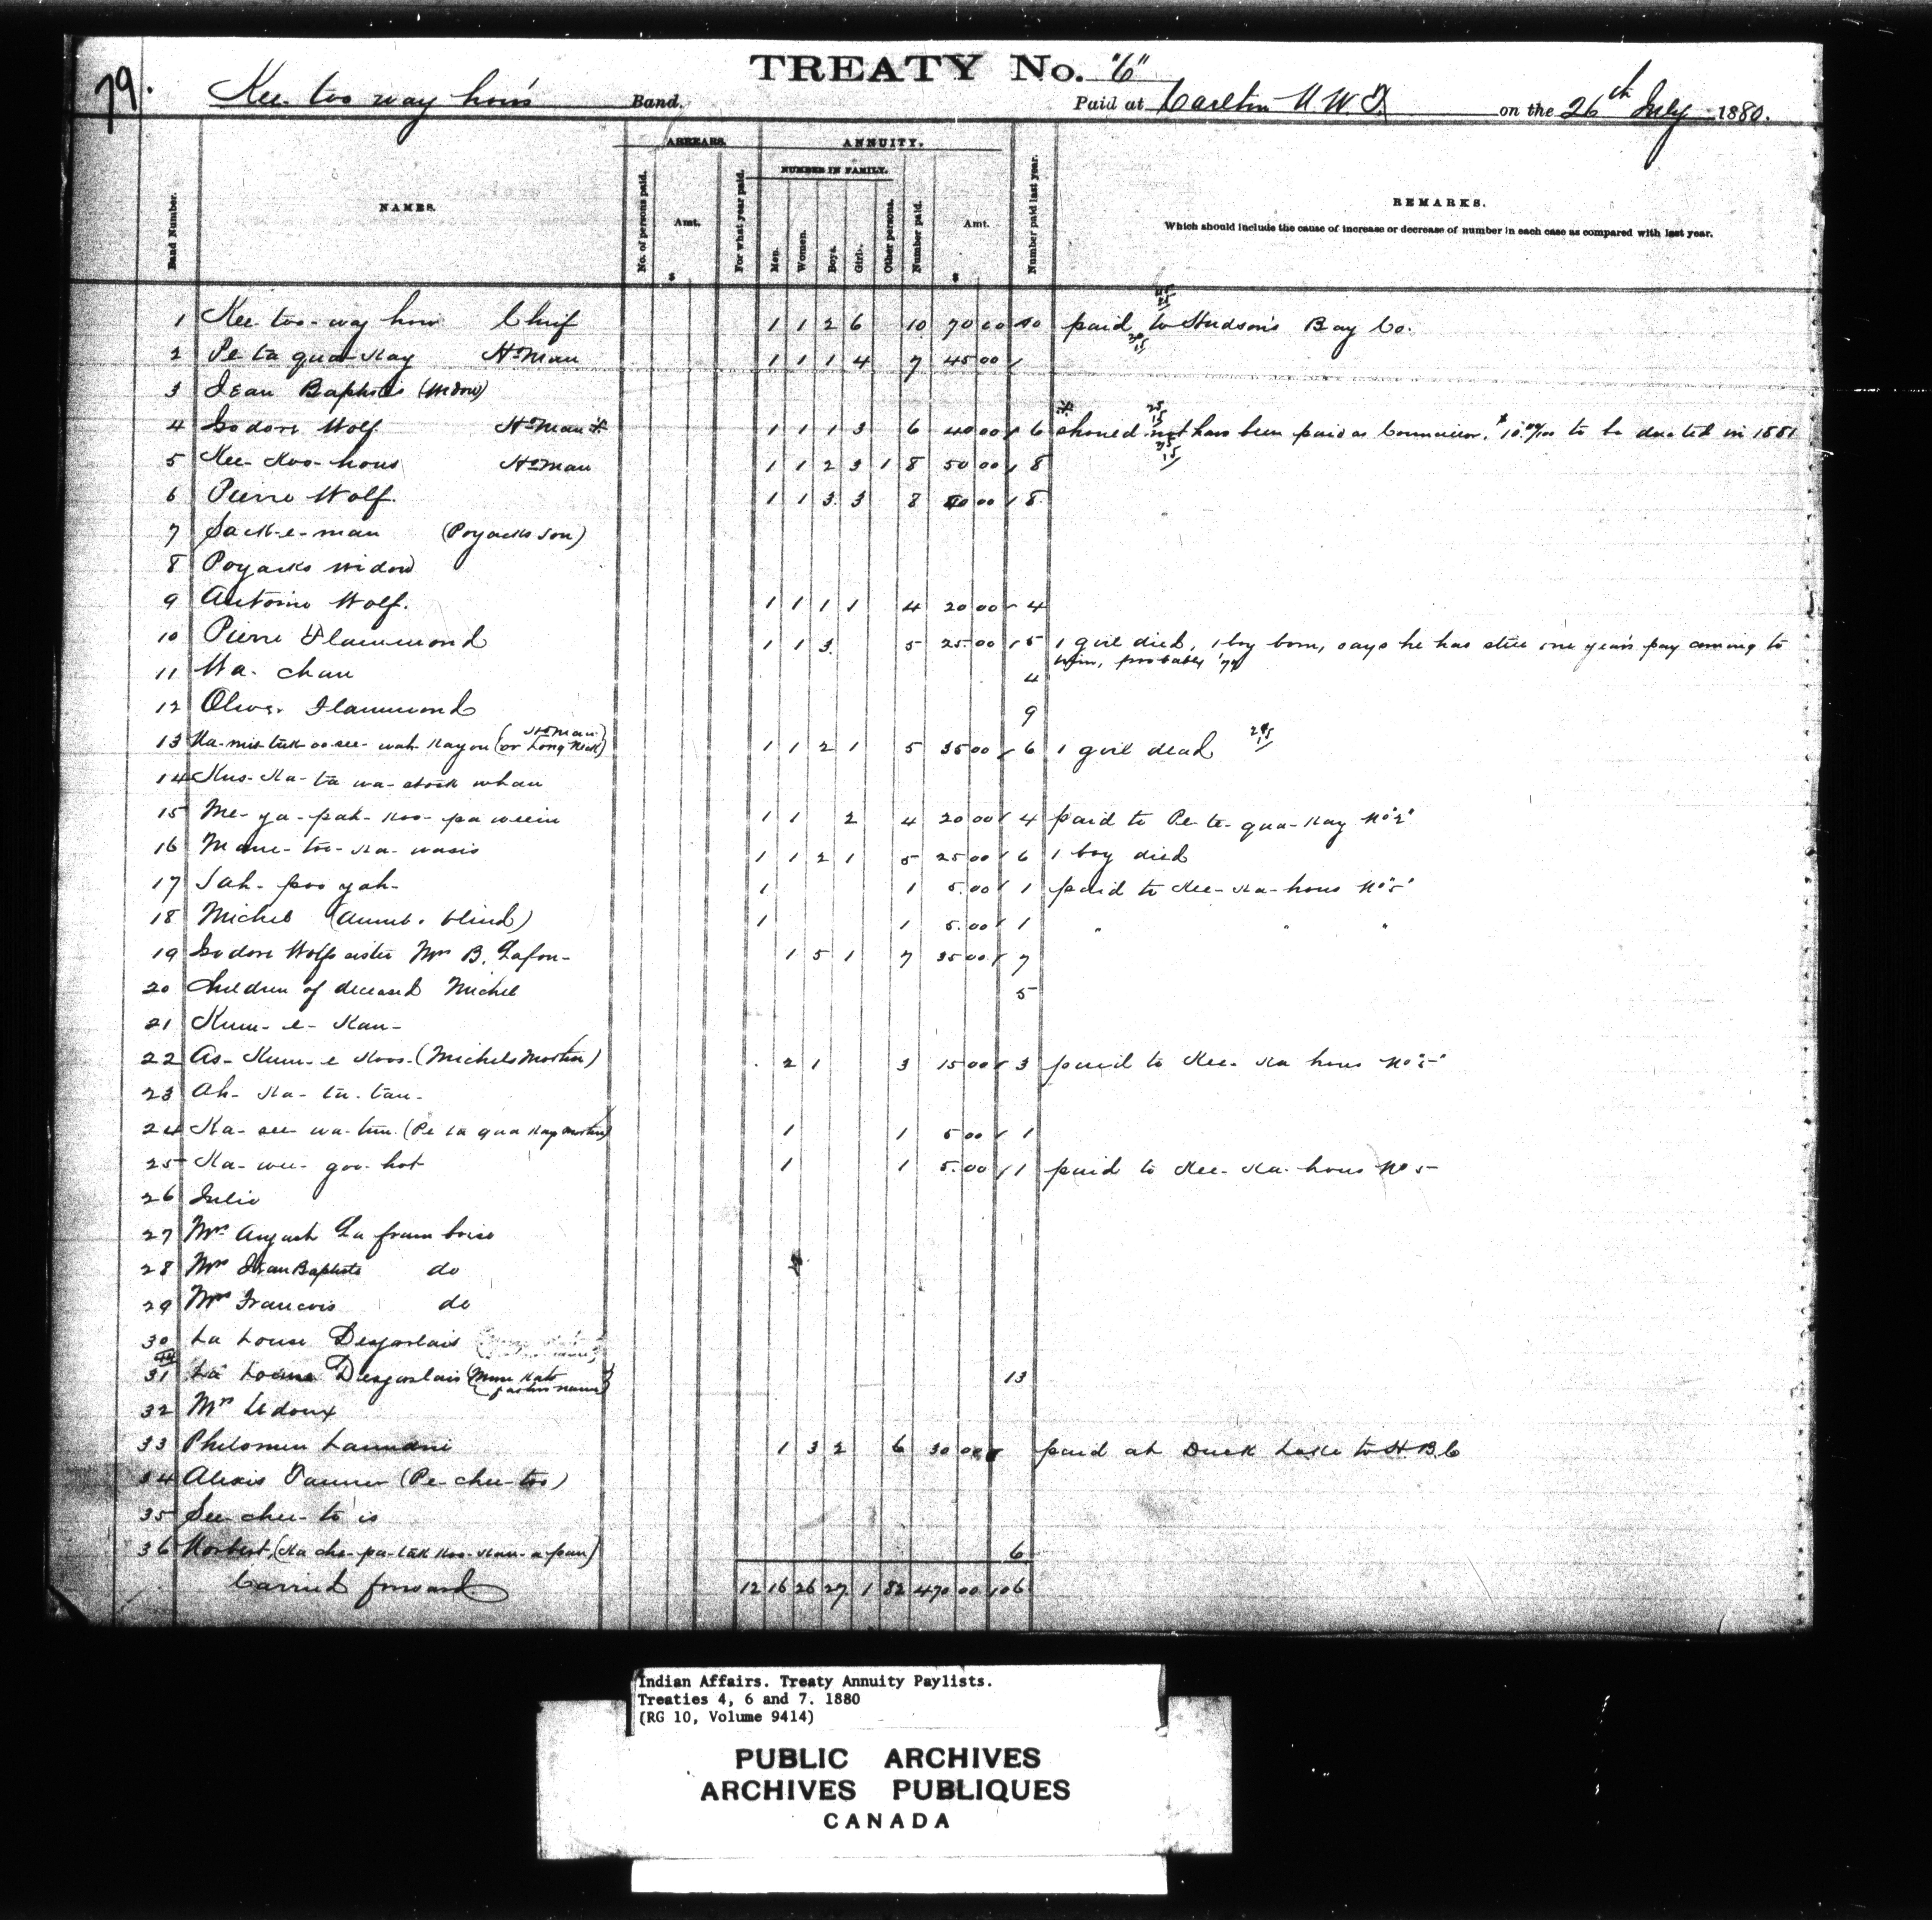 79.
TREATY No. "6"
Kee-too way how's Band. Paid at Carlton N.W.T. on the 26th July 1880.
ARREARS. ANNUITY.
NUMBER IN FAMILY.
Band Number. NAMES. No. of persons paid. Amt. For what year paid. Men. Women. Boys. Girls. Other persons. Number paid. Amt. Number paid last year. REMARKS.
Which should include the cause of increase or decrease of number in each case as compared with last year.
$ $
1 Kee-too-way how Chief 1 1 2 6 10 70 00 10 paid to Hudson's Bay Co.
2 Pe ta qua-Kay Hd Man 1 1 1 4 7 45 00
3 Jean Baptiste (Widow)
4 Isodore Wolf Hd Man * 1 1 1 3 6 40 00 6 * should not have been paid as Councillor. $10 00/100 to be deducted in 1881
5 Kee-Koo-hous Hd Man 1 1 2 3 1 8 50 00 8
6 Pierre Wolf. 1 1 3 3 8 40 00 8
7 Sack-e-man (Poyacks son)
8 Poyacks widow
9 Antoine Wolf. 1 1 1 1 4 20 00 4
10 Pierre Flammond 1 1 3 5 25.00 5 1 girl died, 1 boy born, says he has still one year's pay coming to
him, probably '79
11 Wa-chan 4
12 Oliver Flammond 9
13 Ka-mis-tuk-oo-see-wah-Kayon (Hd Man or Long Neck) 1 1 2 1 5 35 00 6 1 girl dead
14 Kus-Ka-ta wa-stook whan
15 Me-ya-pah-Koo-pa weein 1 1 2 4 20 00 4 paid to Pe-te-qua-Kay No "2"
16 Mane-too-Ka-wasis 1 1 2 1 5 25 00 6 1 boy died
17 Jah-poo yah- 1 1 5.00 1 paid to Kee-Ka-hous No "5"
18 Michel (dumb. blind) 1 1 5.00 1 " " "
19 Isodore Wolfs sister Mrs B. Lafon- 1 5 1 7 35 00 7
20 Children of deceased Michel 5
21 Kum-e-Kan-
22 As-Kum-e Koos-(Michels Mother) 2 1 3 15 00 3 paid to Kee-Ka hous No "5"
23 Ah-Ka-ta-tau-
24 Ka-see-wa-tum. (Pe ta qua Kays mother) 1 1 5 00 1
25 Ka-wee-goo-hot 1 1 5.00 1 paid to Kee-Ka-hous No 5
26 Julie
27 Mrs August La fram boise
28 Mrs Jean Baptiste do
29 Mrs Francois do
30 La Louise Desjarlais
31 La Louise Desjarlais 13
32 Mrs Ledoux
33 Philomen 1 3 2 6 30 00 paid at Duck Lake to H.B.C
34 Alexis Tanner (Pe-chee-too)
35 See-chee-to is
36 Norbert, (Ka che-pa-tak Koo-Kan-a-pan) 6
Carried forward 12 16 26 27 1 82 470 00 106
Indian Affairs. Treaty Annuity Paylists.
Treaties 4, 6 and 7. 1880
(RG 10, Volume 9414)
PUBLIC ARCHIVES
ARCHIVES PUBLIQUES
CANADA